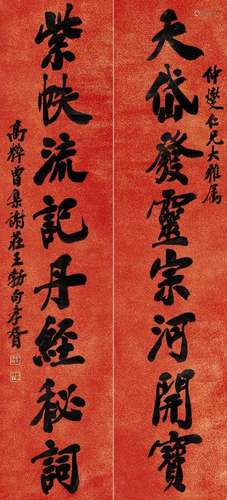 仲燮仁兄大雅属
天岱發靈宗河開寶
紫帙流記丹經秘詞
高 曾集謝莊王勃句孝胥